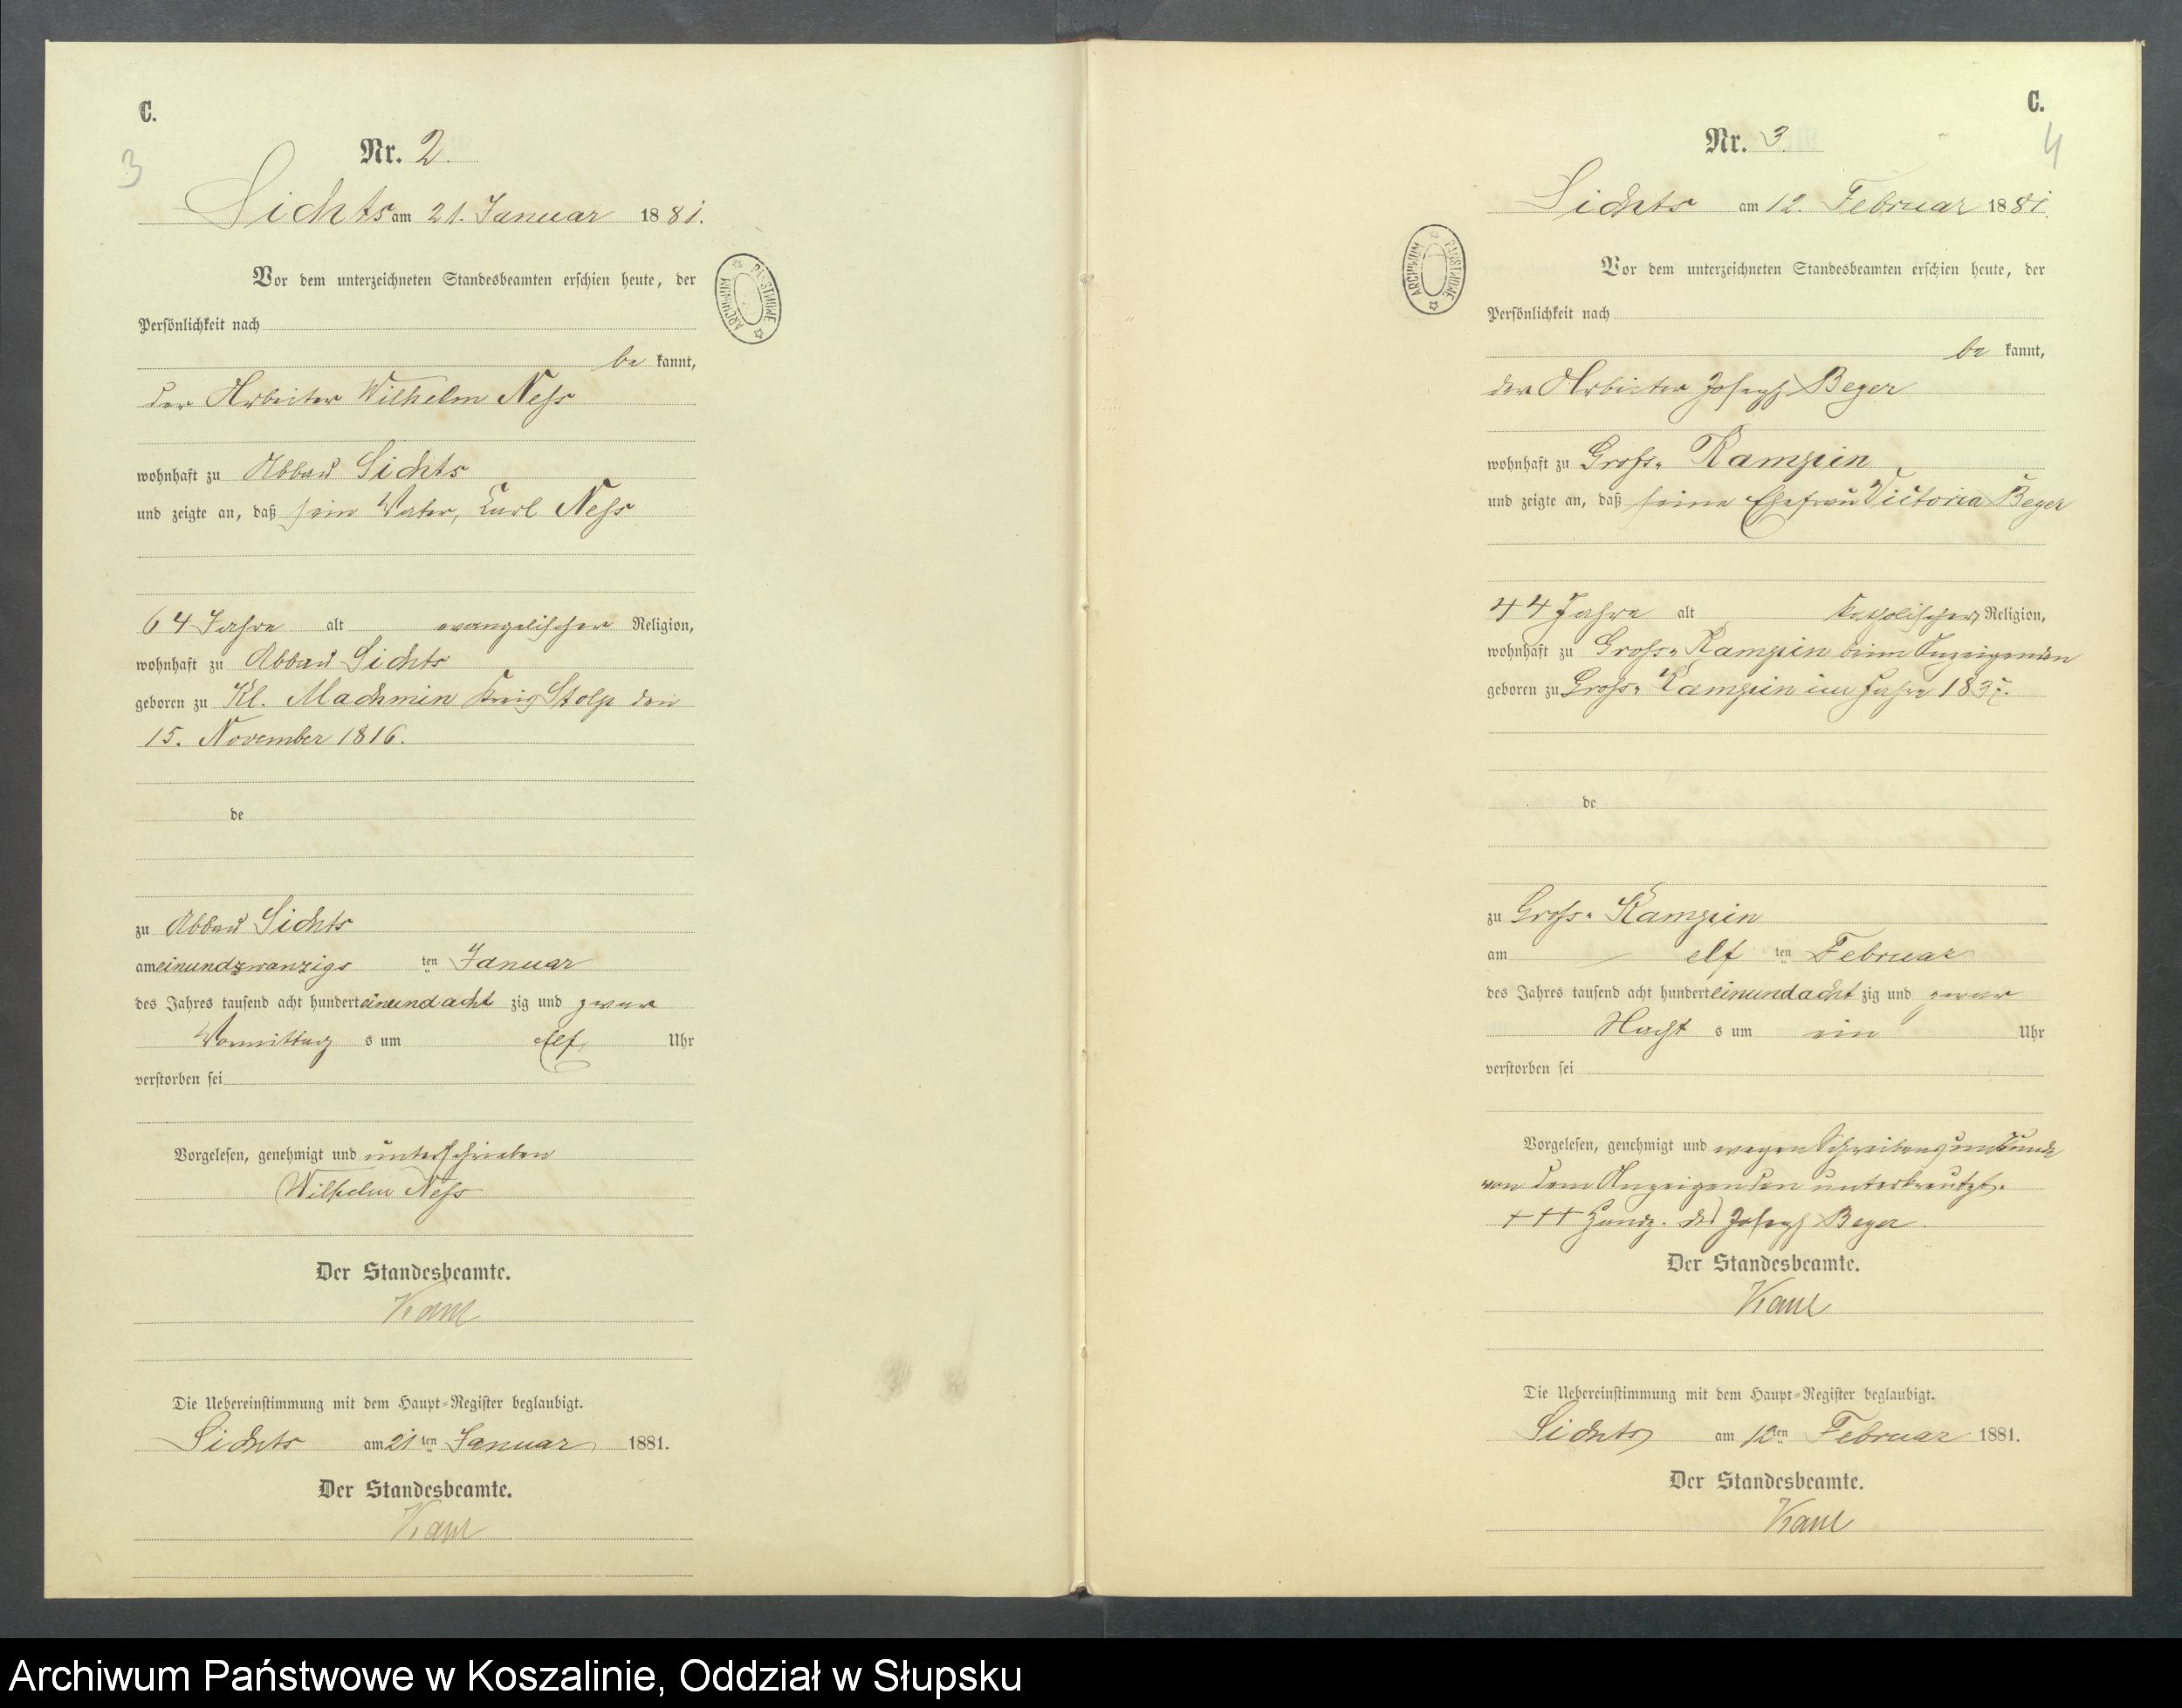 C.
3
Nr. 2.
Lichts am 21. Januar 1881.
Vor dem unterzeichneten Standesbeamten erschien heute, der
Persönlichkeit nach
be kannt,
der Arbeiter Wilhelm Neß
wohnhaft zu Abbau Lichts
und zeigte an, daß sein Vater, Carl Neß
64 Jahre alt evangelischer Religion,
wohnhaft zu Abbau Lichts
geboren zu Kl. Machmin Kreis Stolp den
15. November 1816.
de
zu Abbau Lichts
am einundzwanzigs ten Januar
des Jahres tausend acht hundert einundacht zig und zwar
Vormittag s um elf Uhr
verstorben sei
Vorgelesen, genehmigt und unterschrieben
Wilhelm Neß
Der Standesbeamte.
Kaul
Die Uebereinstimmung mit dem Haupt-Register beglaubigt.
Lichts am 21 ten Januar 1881.
Der Standesbeamte.
Kaul
ARCHIWUM PAŃSTWOWE
C.
4
Nr. 3.
Lichts am 12. Februar 1881.
Vor dem unterzeichneten Standesbeamten erschien heute, der
Persönlichkeit nach
be kannt,
der Arbeiter Joseph Beger
wohnhaft zu Groß-
und zeigte an, daß seine Ehefrau Victoria Beger
44 Jahre alt katholischer Religion,
wohnhaft zu Groß- beim Anzeigenden
geboren zu Groß- im Jahre 1837.
de
zu Groß-
am elf ten Februar
des Jahres tausend acht hundert einundacht zig und zwar
Nacht s um ein Uhr
verstorben sei
Vorgelesen, genehmigt und wegen Schreibensunkunde
von dem Anzeigenden unterkreutzt.
+++ Handz. des Joseph Beger.
Der Standesbeamte.
Kaul
Die Uebereinstimmung mit dem Haupt-Register beglaubigt.
Lichts am 12 ten Februar 1881.
Der Standesbeamte.
Kaul
ARCHIWUM PAŃSTWOWE
Archiwum Państwowe w Koszalinie, Oddział w Słupsku